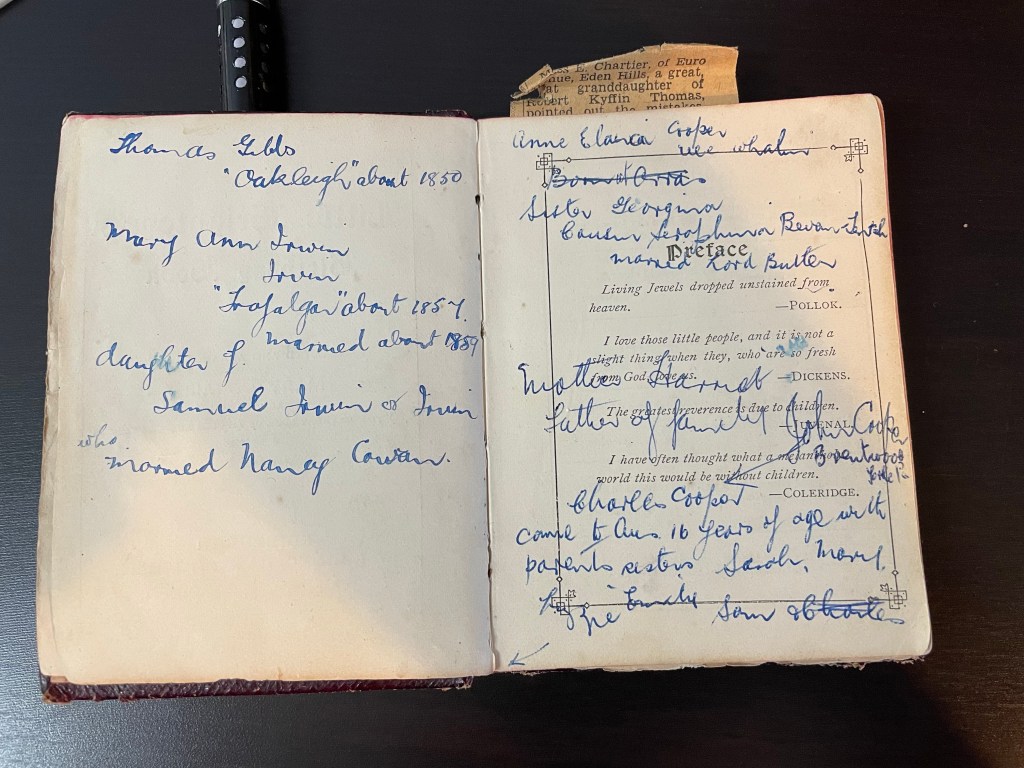 Thomas Gibbs
"Oakleigh" about 1850
Mary Ann Irwin
Irvin
"Trafalgar" about 1857.
married about 1859
daughter of
Samuel Irwin or Irvin
who
married Nancy Cowan.
E. Chartier, of Euro
nue, Eden Hills, a great,
at granddaughter of
Robert Kyffin Thomas,
pointed out the mistakes
Anne Cooper
nee
Born at
Sister Georgina
Cousin Seraphina Bevan
married Lord Butler
Preface
Living Jewels dropped unstained from
heaven. —POLLOK.
I love those little people, and it is not a
slight thing when they, who are so fresh
from God, love us. —DICKENS.
Mother Harriet
The greatest reverence is due to children.
—JUVENAL.
Father of family John Cooper
Brentwood
I have often thought what a melancholy
world this would be without children.
—COLERIDGE.
Charles Cooper
came to Aus 16 years of age with
parents sisters Sarah, Mary,
Emily Sam & Charles